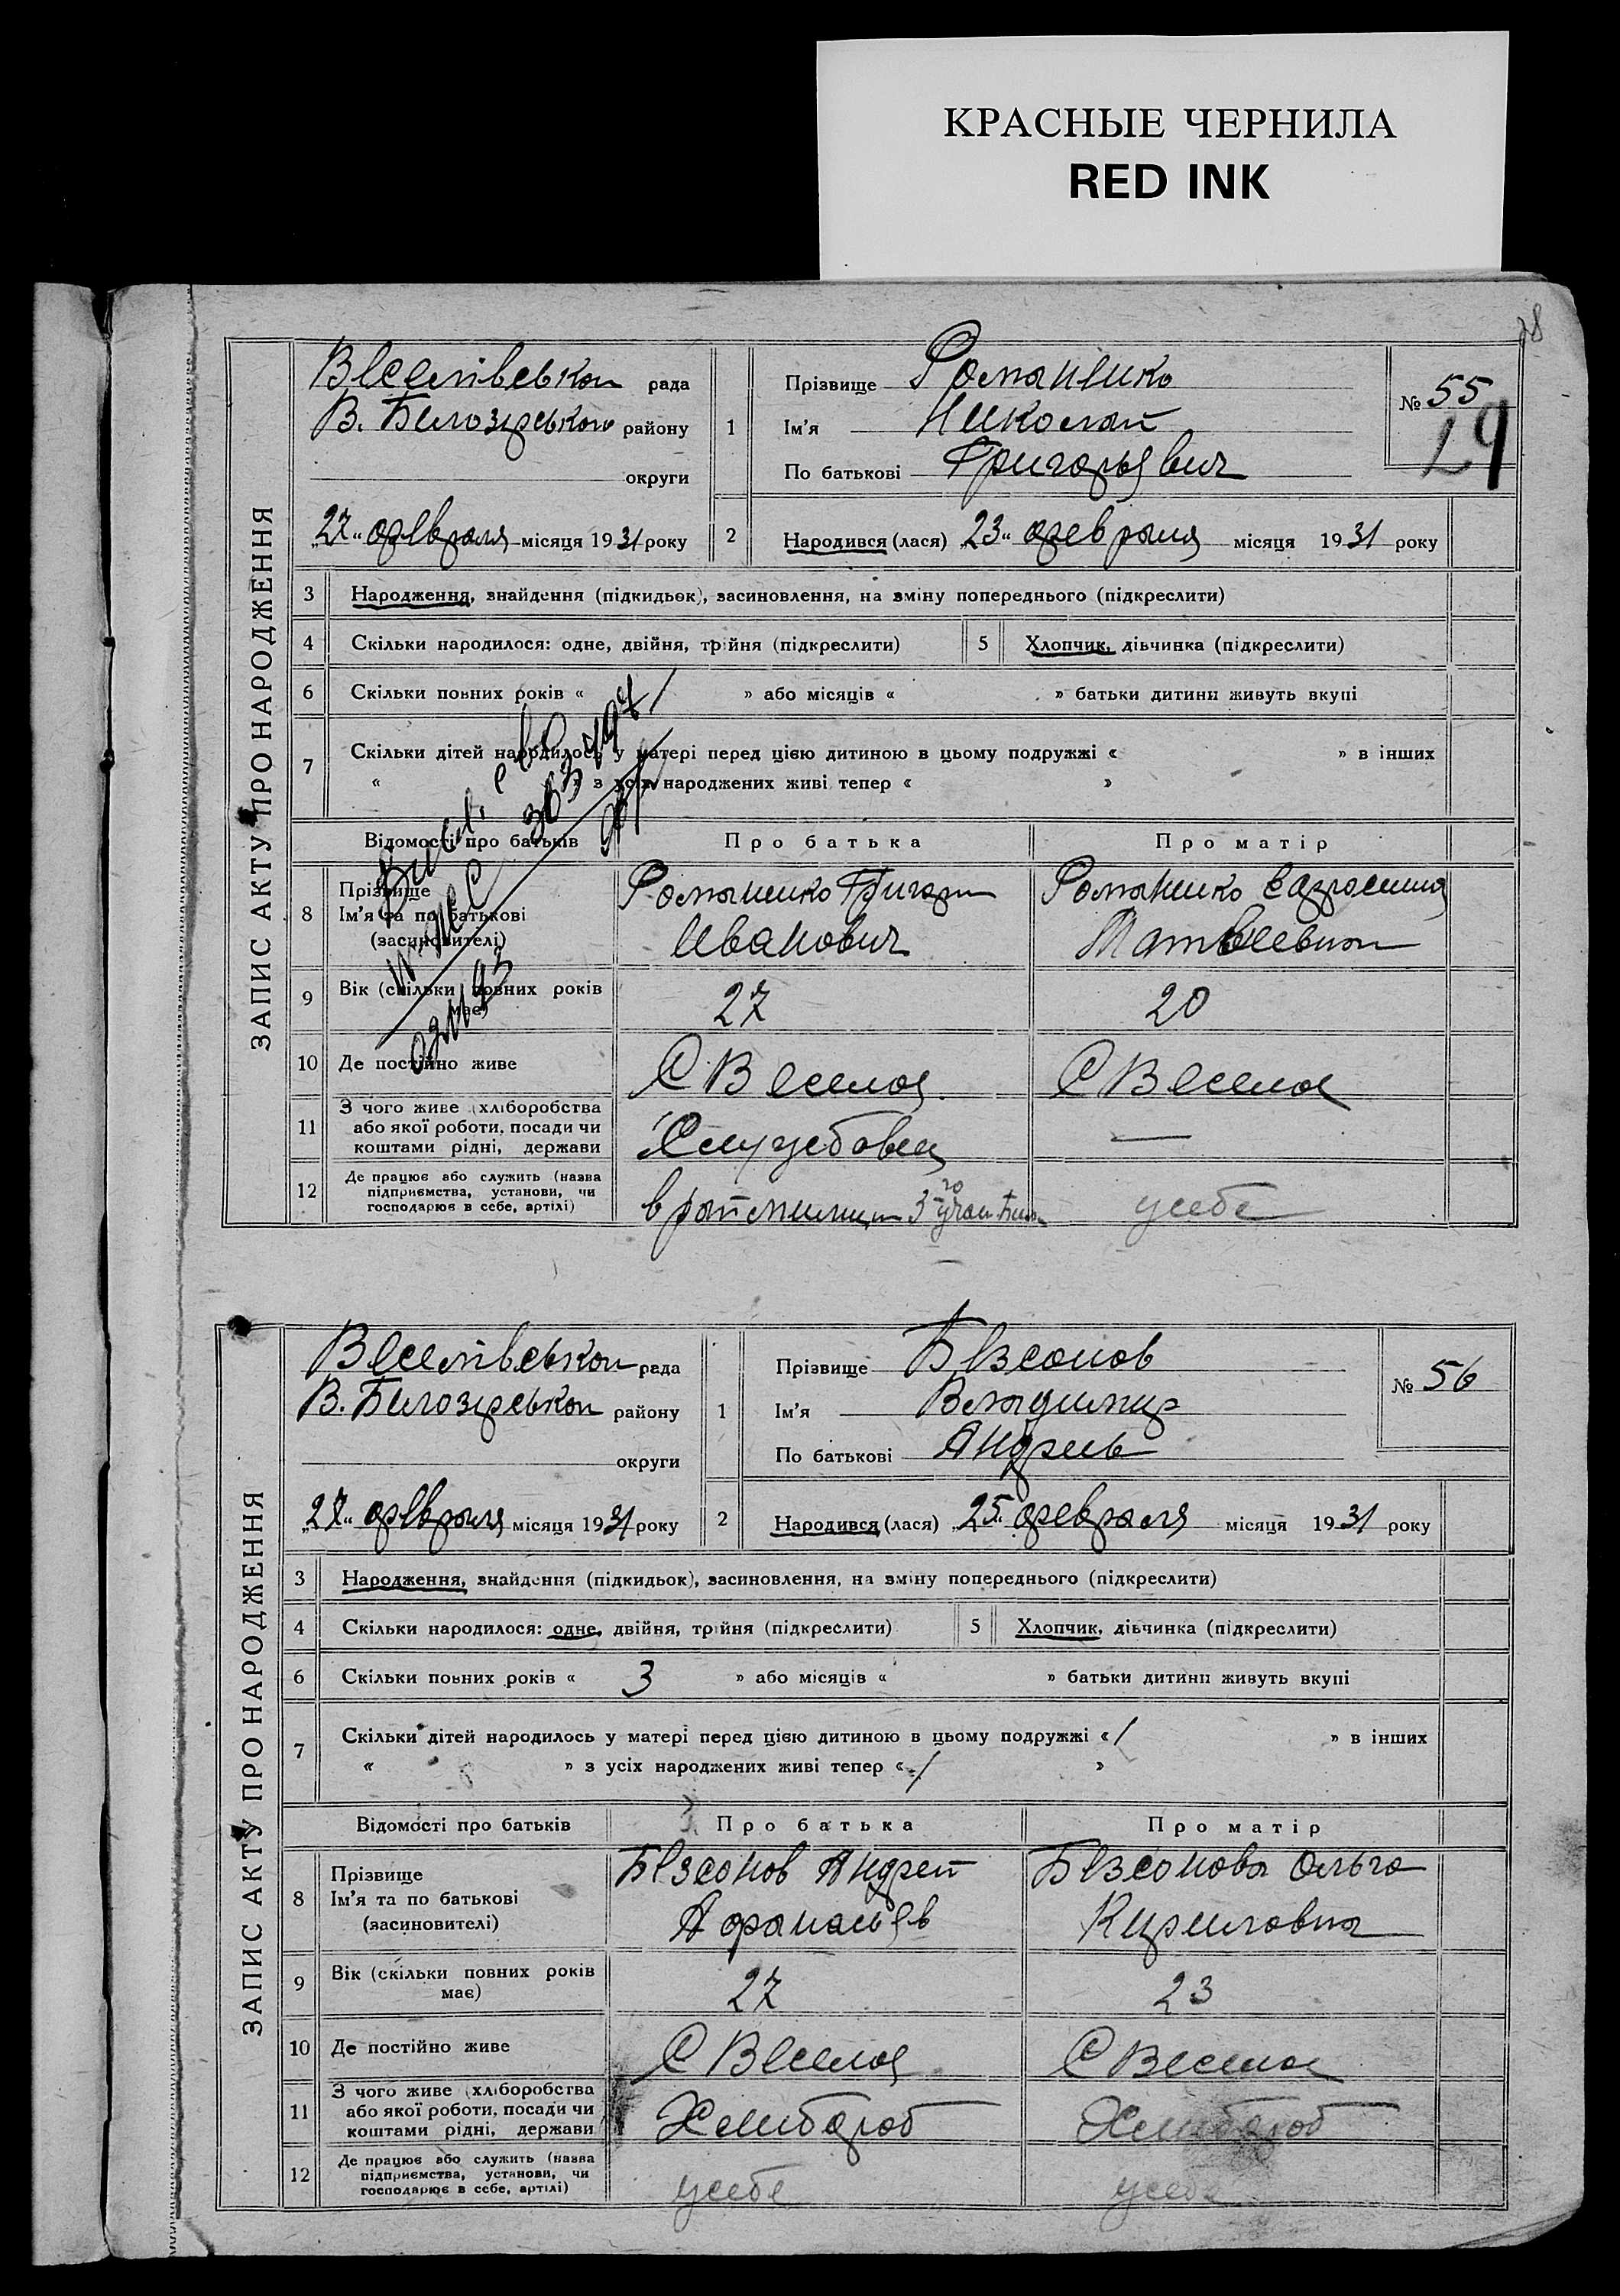 КРАСНЫЕ ЧЕРНИЛА
RED INK
ЗАПИС АКТУ ПРО НАРОДЖЕННЯ
Веселівськои рада
В. Білозірськои району
округи
„27“ февраля місяця 1931 року
1
Прізвище Романенко
Ім'я Николай
По батькові Григорьевич
№ 55
29
2
Народився (лася) „23“ февраля місяця 1931 року
3 Народження, знайдення (підкидьок), засиновлення, на зміну попереднього (підкреслити)
4 Скільки народилося: одне, двійня, трійня (підкреслити) 5 Хлопчик, дівчинка (підкреслити)
6 Скільки повних років « » або місяців « » батьки дитини живуть вкупі
7 Скільки дітей народилось у матері перед цією дитиною в цьому подружжі « » в інших
« » з усіх народжених живі тепер « »
Відомості про батьків Про батька Про матір
8 Прізвище
Ім'я та по батькові
(засиновителі)
Романенко Григори
Иванович
Романенко
Матвеевна
9 Вік (скільки повних років має) 27 20
10 Де постійно живе С Веселое С Веселое
11 З чого живе (хліборобства
або якої роботи, посади чи
коштами рідні, держави
Службовец —
12 Де працює або служить (назва
підприємства, установи, чи
господарює в себе, артілі)
в рай милиции 3го
усебе
ЗАПИС АКТУ ПРО НАРОДЖЕННЯ
Веселівськои рада
В. Білозірськои району
округи
„27“ февраля місяця 1931 року
1
Прізвище Безсонов
Ім'я Владимир
По батькові Андреев
№ 56
2
Народився (лася) „25“ февраля місяця 1931 року
3 Народження, знайдення (підкидьок), засиновлення, на зміну попереднього (підкреслити)
4 Скільки народилося: одне, двійня, трійня (підкреслити) 5 Хлопчик, дівчинка (підкреслити)
6 Скільки повних років « 3 » або місяців « » батьки дитини живуть вкупі
7 Скільки дітей народилось у матері перед цією дитиною в цьому подружжі « 1 » в інших
« » з усіх народжених живі тепер « 1 »
Відомості про батьків Про батька Про матір
8 Прізвище
Ім'я та по батькові
(засиновителі)
Безсонов Андрей
Афанасьев
Безсонова Ольга
Кириловна
9 Вік (скільки повних років має) 27 23
10 Де постійно живе С Веселое С Веселое
11 З чого живе (хліборобства
або якої роботи, посади чи
коштами рідні, держави
Хлибороб Хлибороб
12 Де працює або служить (назва
підприємства, установи, чи
господарює в себе, артілі)
усебе усебе